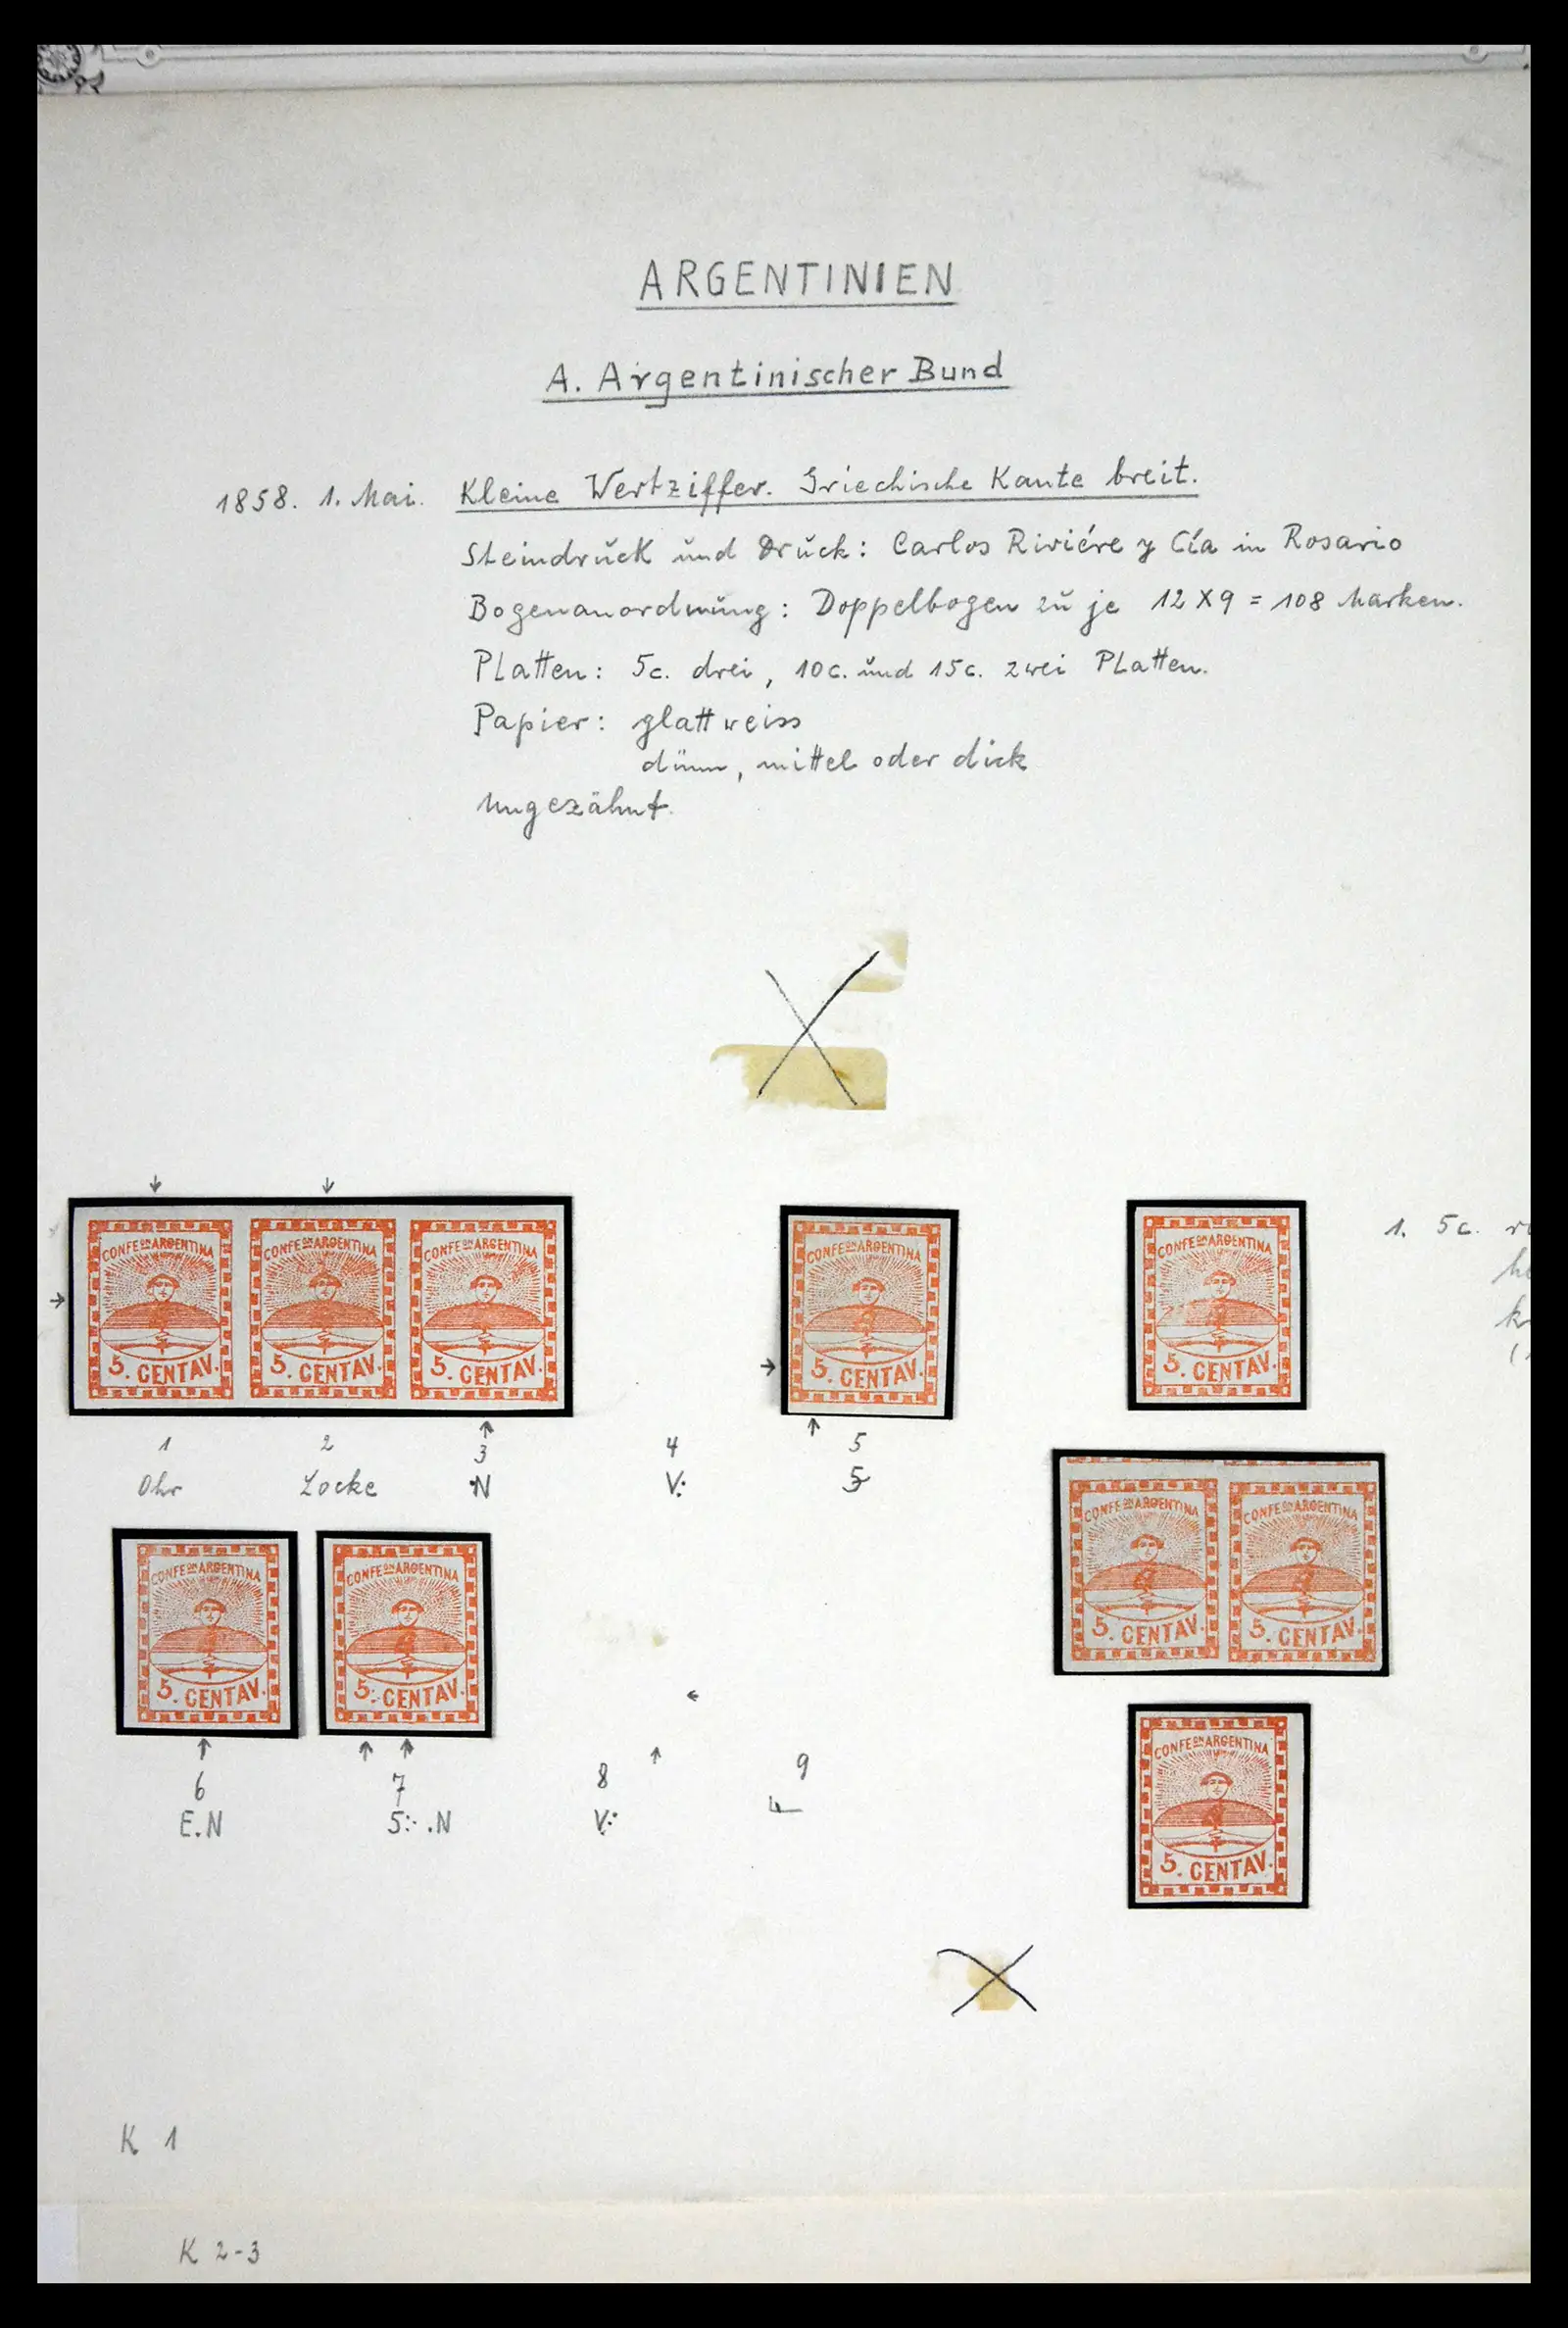 ARGENTINIEN
A. Argentinischer Bund
1858. 1. Mai. Kleine Wertziffer. Griechische Kante breit.
Steindruck und Druck: Carlos Riviére y Cía in Rosario
Bogenanordnung: Doppelbogen zu je 12 X 9 = 108 Marken.
Platten: 5c. drei, 10c. und 15c. zwei Platten.
Papier: glatt weiss
dünn, mittel oder dick
Ungezähnt.
CONFEON ARGENTINA CONFEON ARGENTINA CONFEON ARGENTINA
5. CENTAV. 5. CENTAV. 5. CENTAV.
1 2 3 4 5
Ohr Locke N V: 5
CONFEON ARGENTINA
5. CENTAV.
CONFEON ARGENTINA
5. CENTAV.
1. 5c.
CONFEON ARGENTINA CONFEON ARGENTINA
5. CENTAV. 5. CENTAV.
CONFEON ARGENTINA CONFEON ARGENTINA
5. CENTAV. 5. CENTAV.
6 7 8 9
E.N 5:. .N V:
CONFEON ARGENTINA
5. CENTAV.
K 1
K 2-3